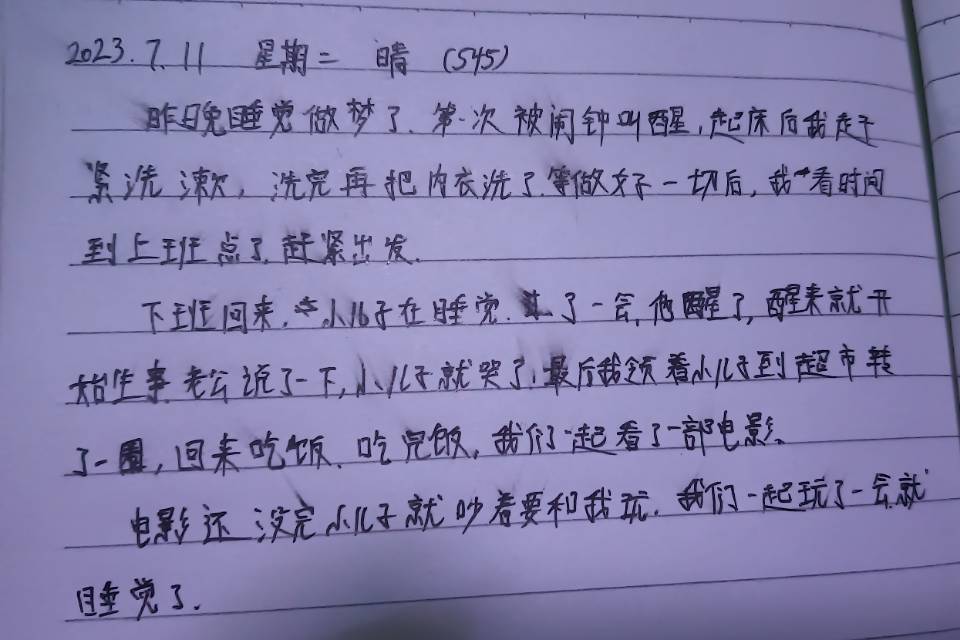 2023.7.11 星期二 晴 (545)
昨日晚睡觉做梦了.第一次被闹钟叫醒,起床后我赶于
紧洗漱,洗完再把内衣洗了.等做好一切后,我一看时间
到上班点了.赶紧出发.
下班回来,小儿子在睡觉.了一会,他醒了,醒来就开
始生事.老公说了一下,小儿子就哭了,最后我领着小儿子到超市转
了一圈,回来吃饭.吃完饭,我们一起看了一部电影.
电影还没完小儿子就吵着要和我玩.我们一起玩了一会就
睡觉了.